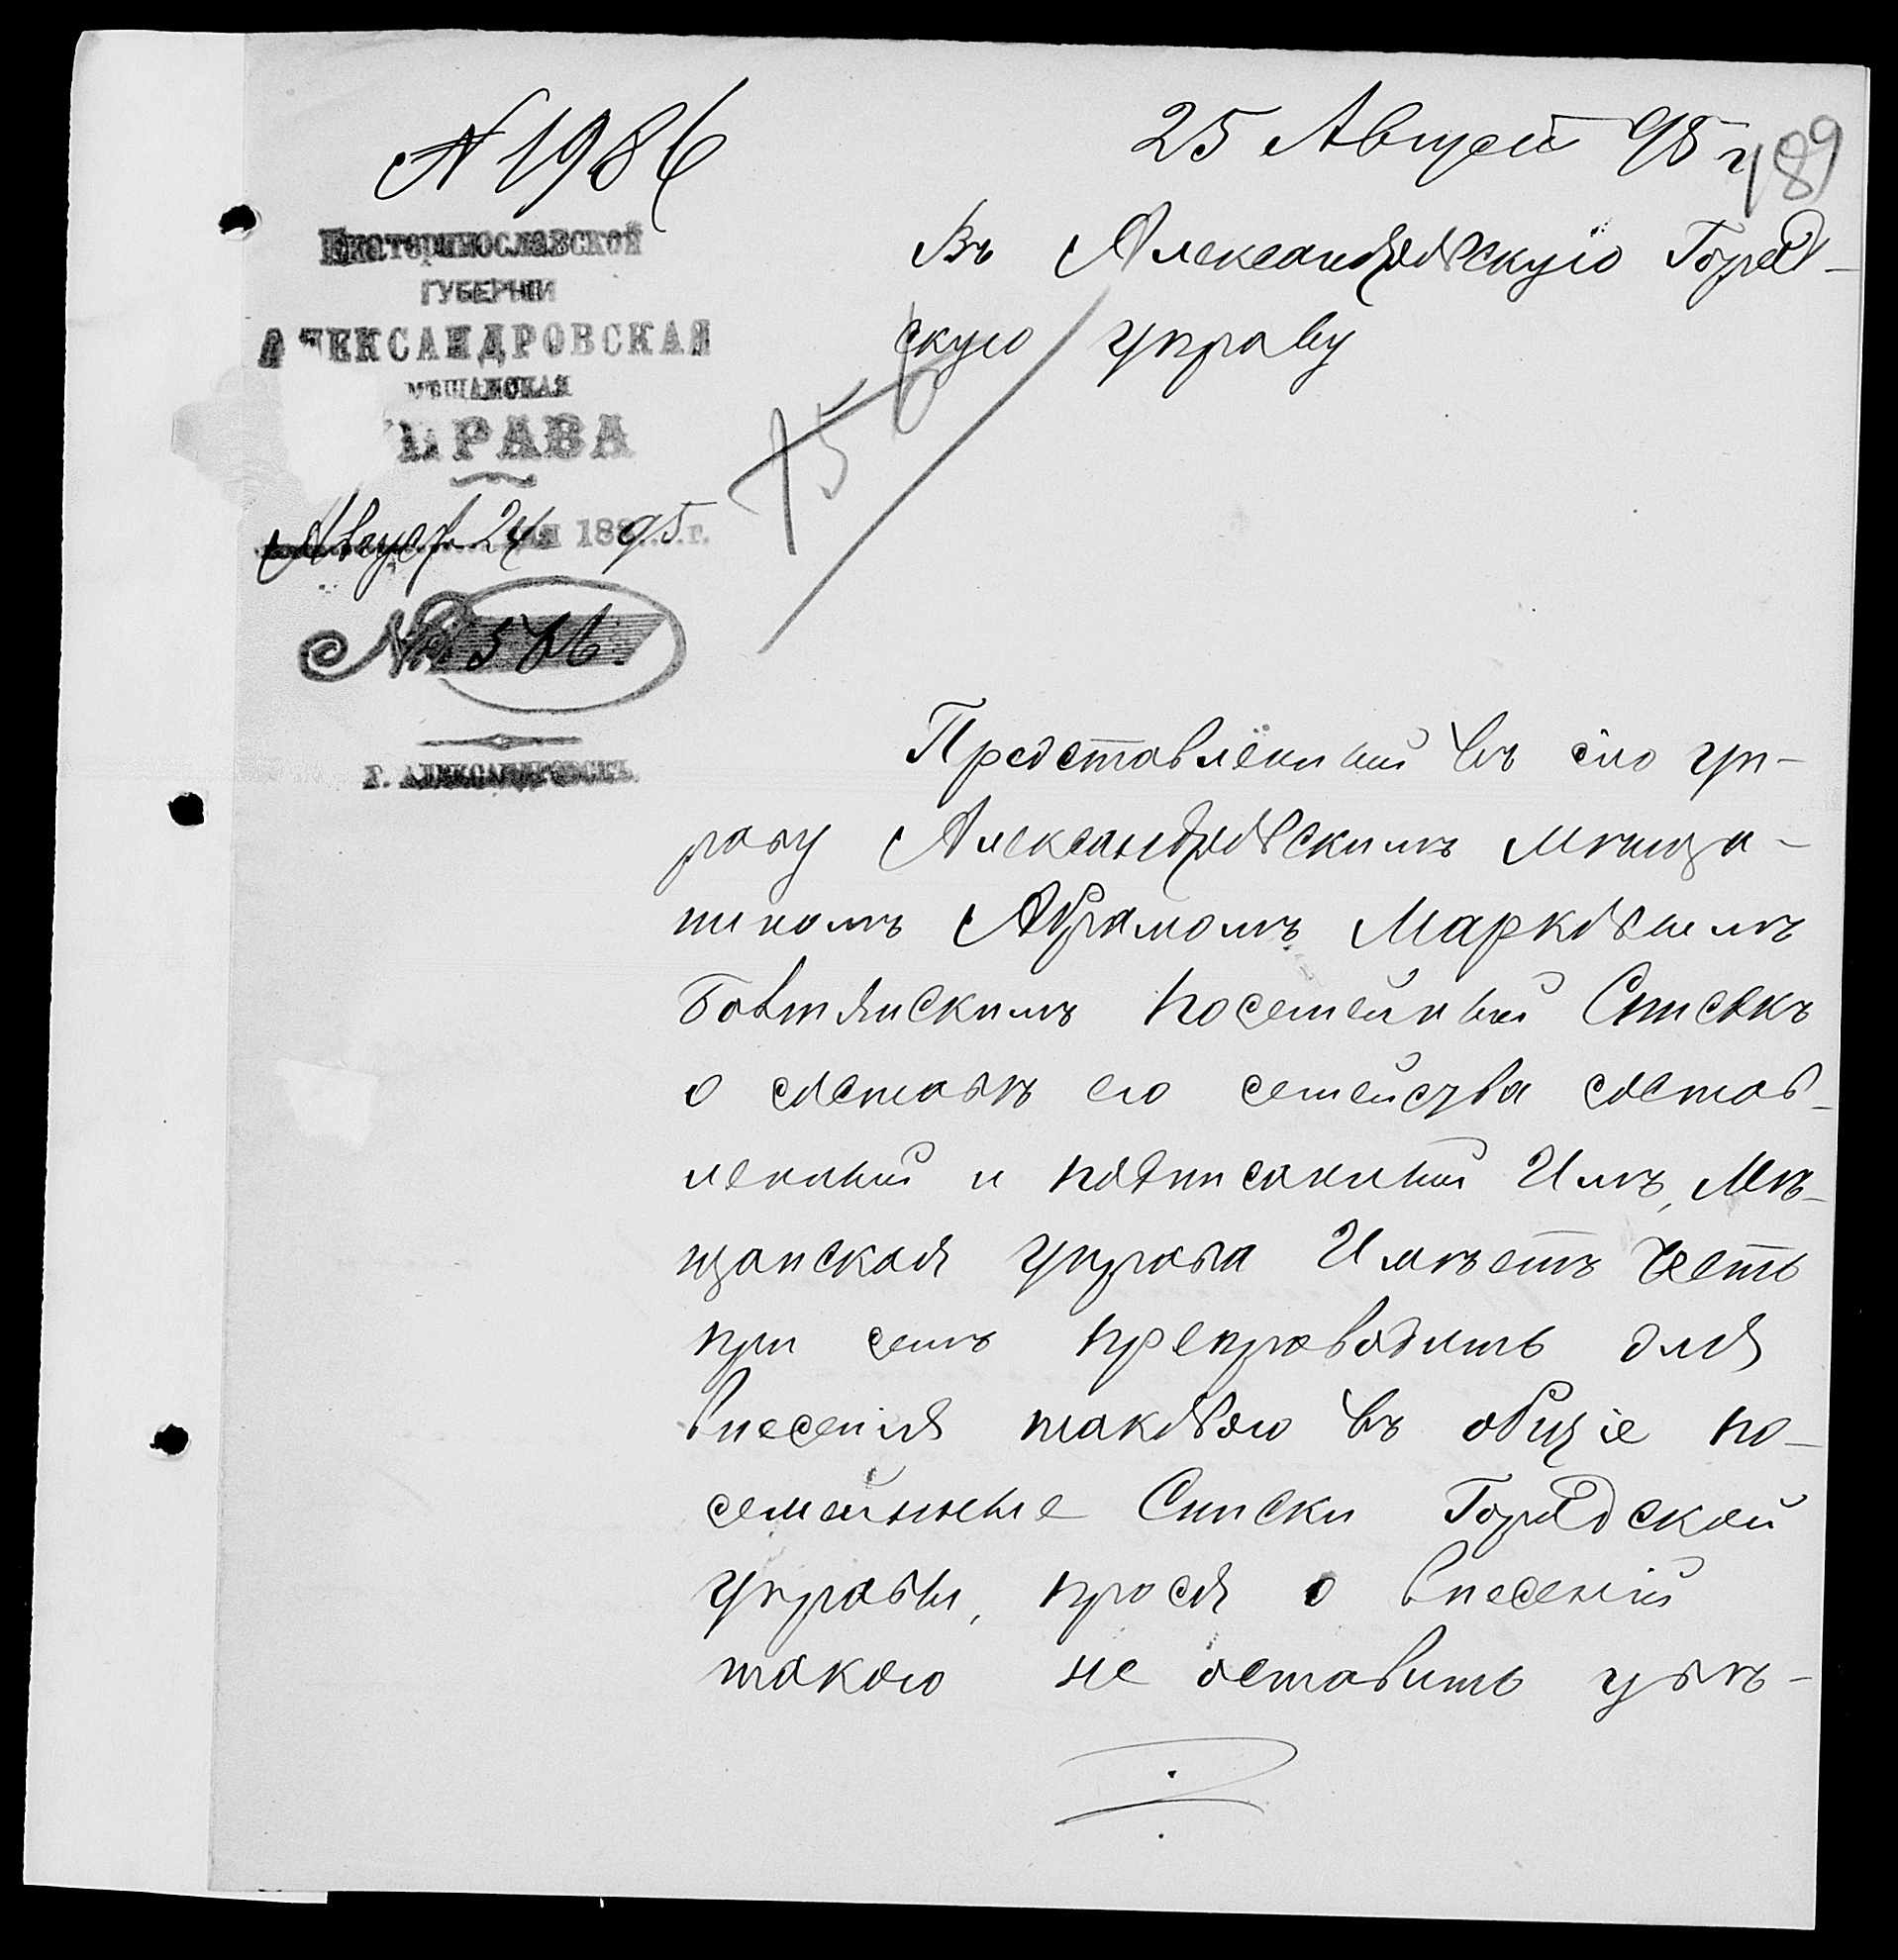 № 1986
25 Август 95 г
189
Екатеринославской
ГУБЕРНІИ
АЛЕКСАНДРОВСКАЯ
МѢЩАНСКАЯ
УПРАВА
Август 24 дня 1895 г.
№ 586.
Г. АЛЕКСАНДРОВСКЪ.
Въ Александровскую Город-
скую управу
Представленный въ сію уп-
раву Александровскимъ мѣща-
ниномъ Абрамомъ Марковымъ
Бовтянскимъ посемейный Списокъ
о составѣ его семейства состав-
ленный и подписанный Имъ, Мѣ-
щанская управа Имѣетъ честь
при семъ препроводить для
внесенія таковаго въ общіе по-
семейные Списки Городской
управы, прося о внесеній
такого не оставить увѣ-